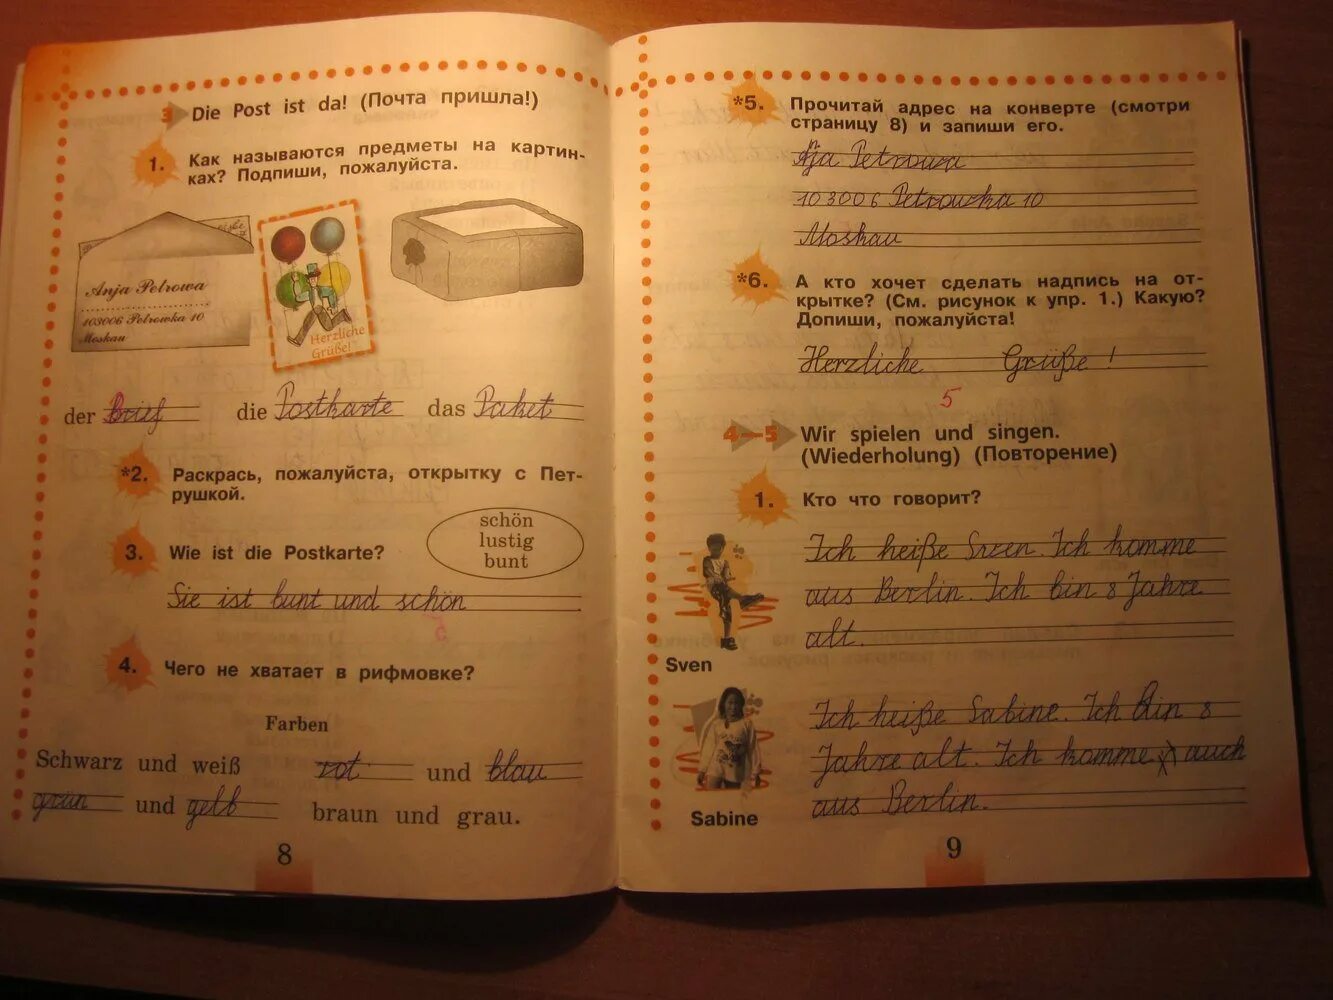 3 Die Post ist da! (Почта пришла!)
1. Как называются предметы на картин-
ках? Подпиши, пожалуйста.
Anja Petrowa
103006 Petrowka 10
Moskau
Herzliche
Grüße!
der Brief die Postkarte das Paket
*2. Раскрась, пожалуйста, открытку с Пет-
рушкой.
3. Wie ist die Postkarte?
schön
lustig
bunt
Sie ist bunt und schön
5
4. Чего не хватает в рифмовке?
Farben
Schwarz und weiß rot und blau
grün und gelb braun und grau.
8
*5. Прочитай адрес на конверте (смотри
страницу 8) и запиши его.
Aja Petrowa
103006 Petrowka 10
Moskau
*6. А кто хочет сделать надпись на от-
крытке? (См. рисунок к упр. 1.) Какую?
Допиши, пожалуйста!
Herzliche Grüße!
5
4—5 Wir spielen und singen.
(Wiederholung) (Повторение)
1. Кто что говорит?
Ich heiße Sven. Ich komme
aus Berlin. Ich bin 8 Jahre
alt.
Sven
Ich heiße Sabine. Ich bin 8
Jahre alt. Ich komme auch
aus Berlin.
Sabine
9